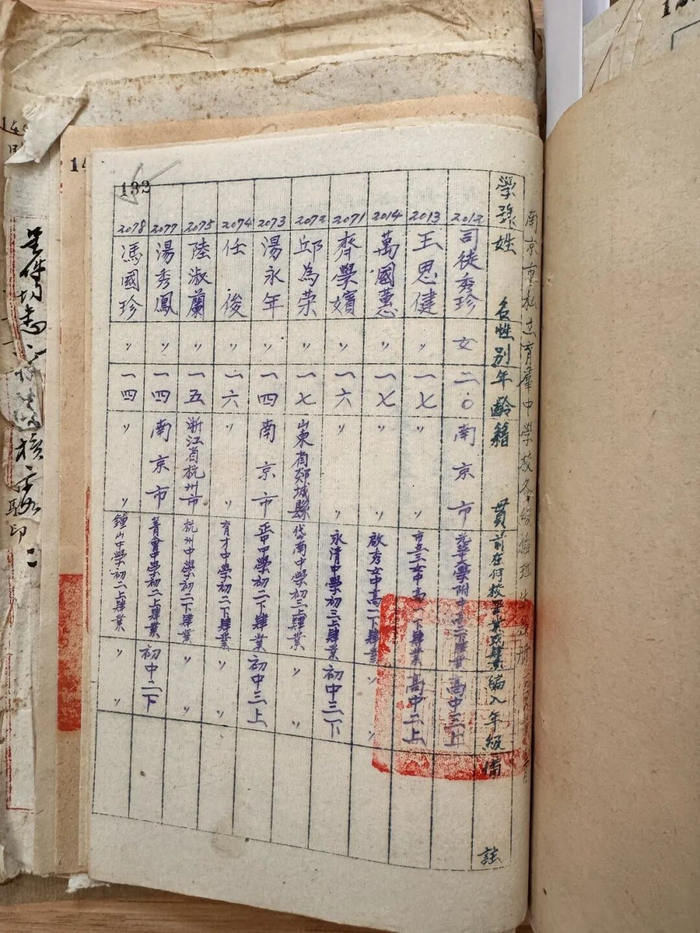 南京市私立育羣中學校各級插班生
學號 姓名 性別 年齡 籍貫 前在何校畢業或肄業 編入年級 備註
2012 司徒秀珍 女 二〇 南京市 高中三上
2013 王思健 〃 一七 〃 高中二上
2014 萬國蕙 〃 一七 〃 啟秀女中高二下肄業 〃
2071 齊學嬪 〃 一六 〃 永清中學初三上肄業 初中三下
2072 邱為荣 〃 一七 山東省郯城縣 岱南中學初三上肄業 〃
2073 湯永年 〃 一四 南京市 正中中學初二下肄業 初中三上
2074 任俊 〃 一六 〃 育才中學初二下肄業 〃
2075 陸淑蘭 〃 一五 浙江省杭州市 杭州中學初二下肄業 〃
2077 湯秀鳳 〃 一四 南京市 中學初二上肄業 初中二下
2078 馮國珍 〃 一四 〃 鍾山中學初二上肄業 〃
132
14